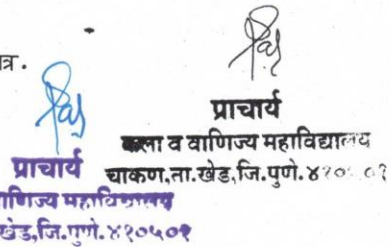 त्र.
प्राचार्य
कला व वाणिज्य महाविद्यालय
चाकण,ता.खेड,जि.पुणे.
प्राचार्य
वाणिज्य महाविद्यालय
खेड,जि.पुणे.४१०५०१